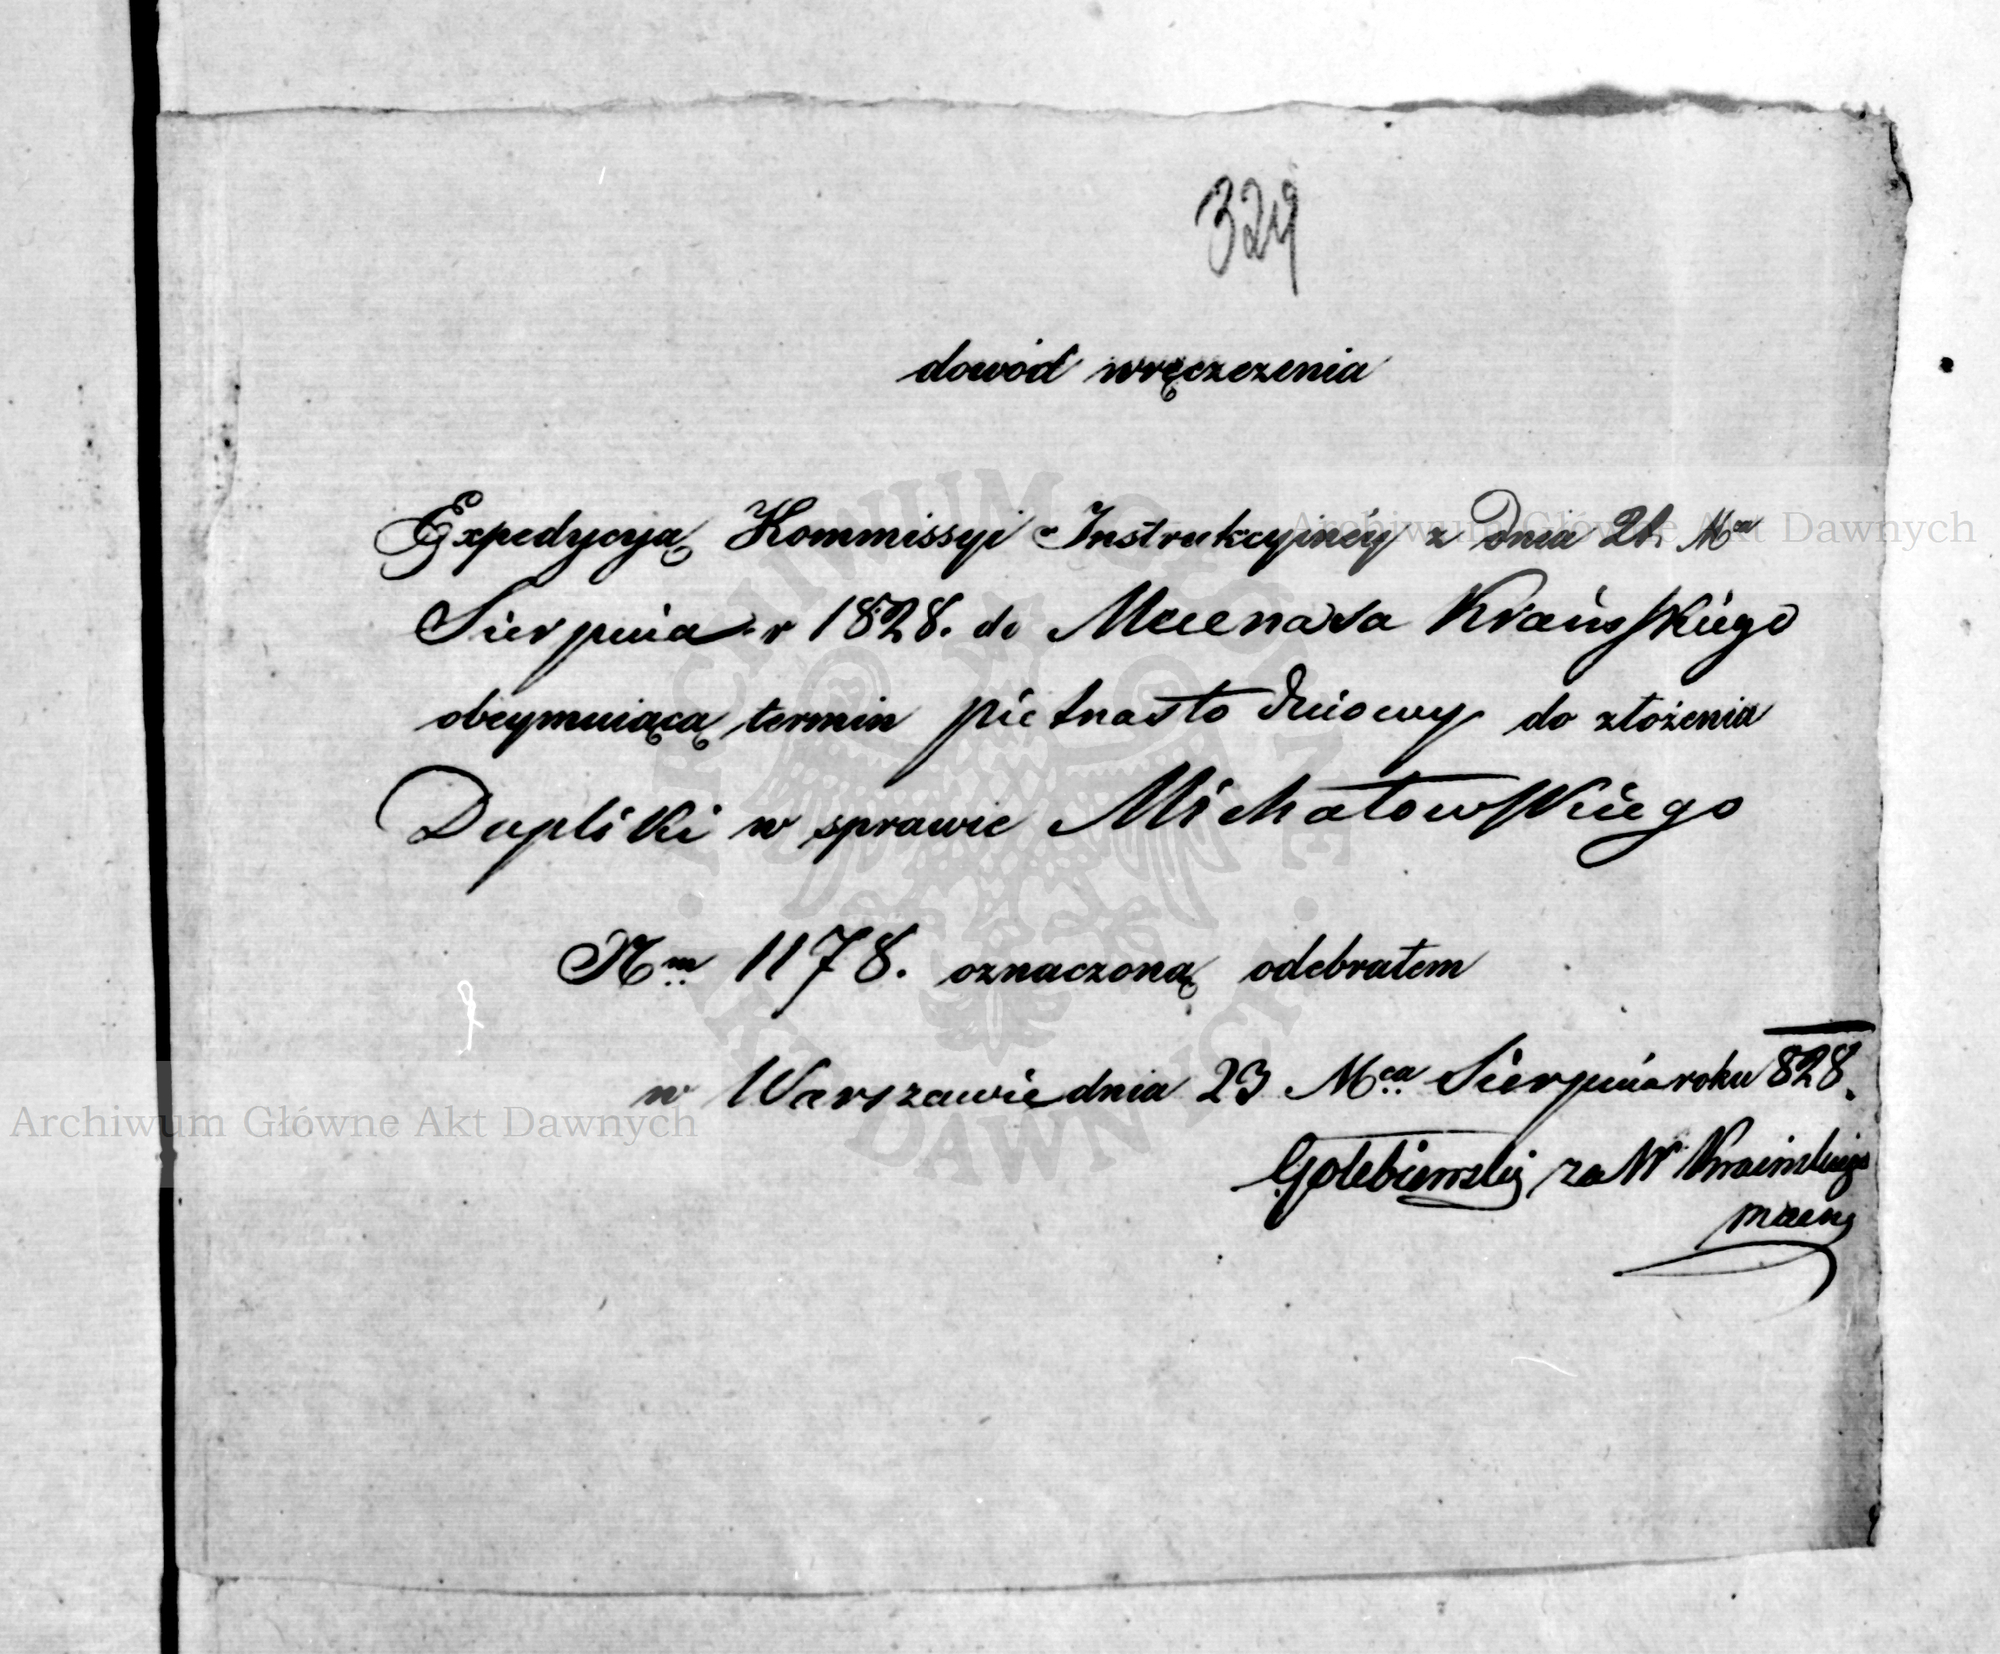 329
dowód wręczenia
Expedycyą Kommissyi Instrukcyinéy z Dnia 21 Mca
Sierpnia r 1828. do Mecenasa Kraińskiego
obeymuiącą termin pietnasto dniowy do złożenia
Dupliki w sprawie Michałowskiego
Nm 1178. oznaczoną odebrałem
w Warszawie dnia 23 Mca Sierpnia roku 828.
Gołebiewski za W Kraińskiego
Archiwum Główne Akt Dawnych
Archiwum Główne Akt Dawnych
ARCHIWUM GŁÓWNE AKT DAWNYCH